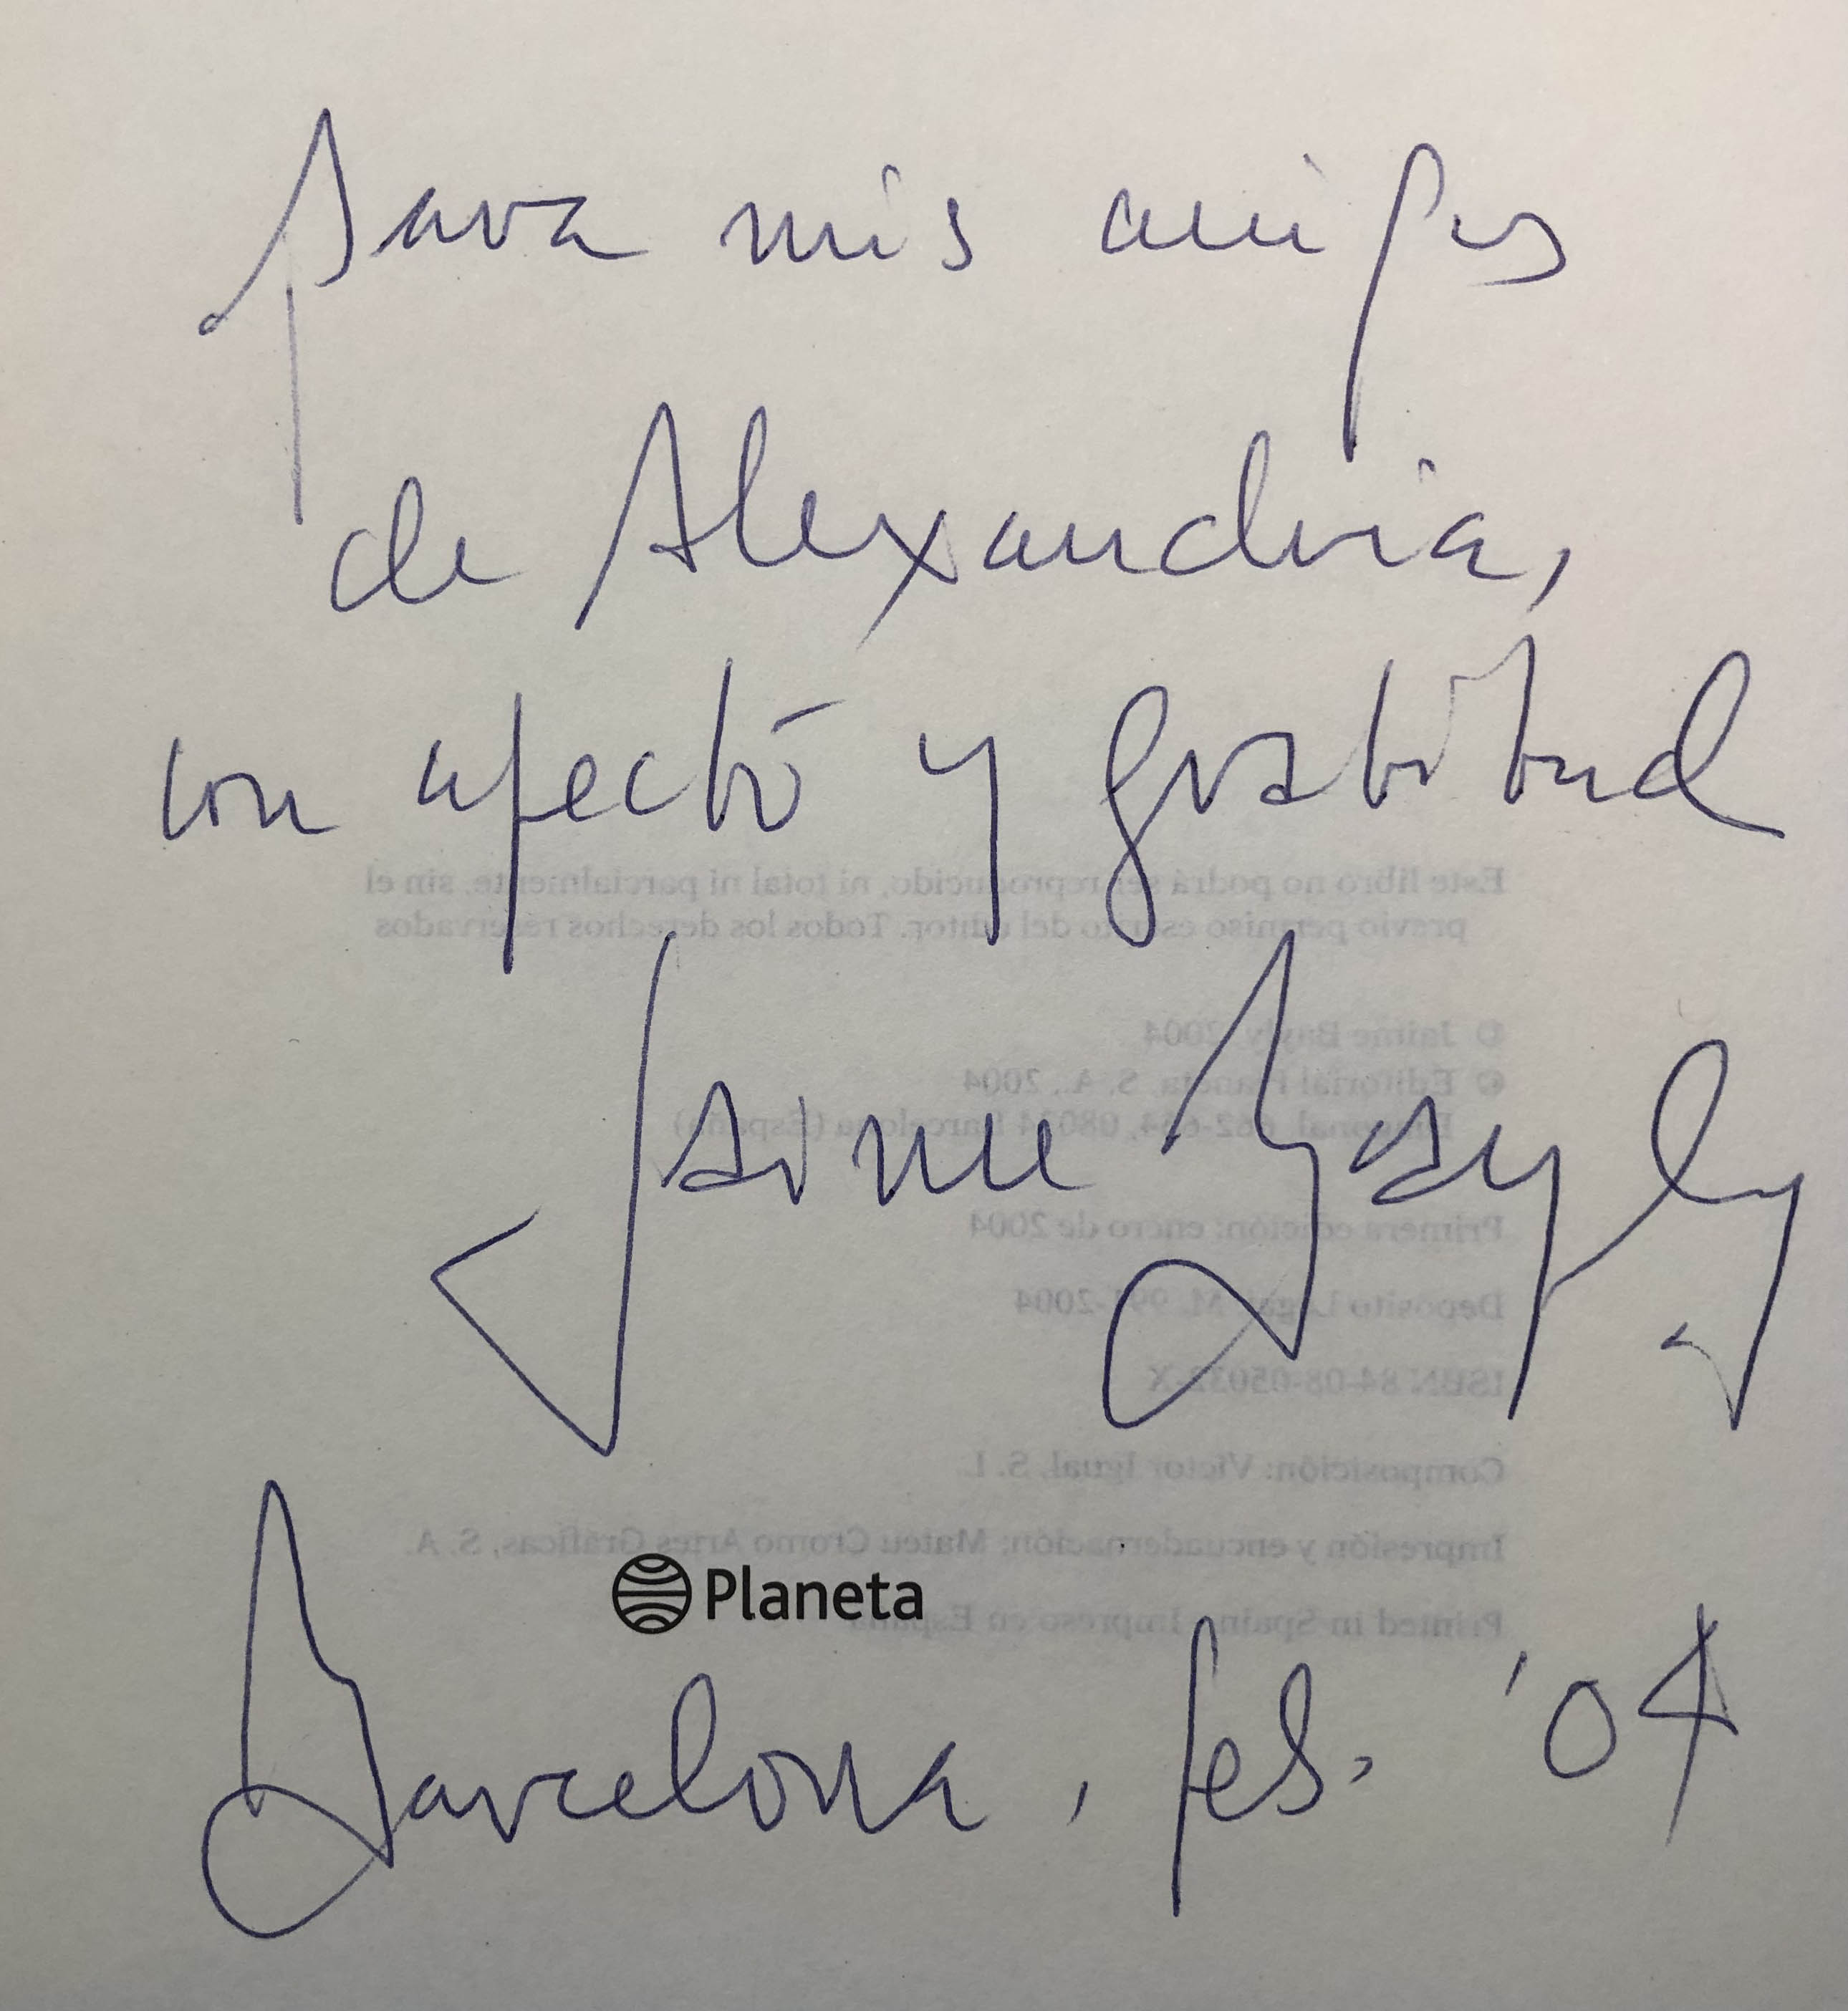 para mis amigos
de Alexandria,
con afecto y gratitud
Jaime Bayly
Planeta
Barcelona, feb. '04
Este libro no podrá ser reproducido, ni total ni parcialmente, sin el
previo permiso escrito del editor. Todos los derechos reservados
© Jaime Bayly, 2004
© Editorial Planeta, S. A., 2004
Diagonal, 662-664, 08034 Barcelona (España)
Primera edición: enero de 2004
Depósito Legal: M. 991-2004
ISBN 84-08-05032-X
Composición: Víctor Igual, S. L.
Impresión y encuadernación: Mateu Cromo Artes Gráficas, S. A.
Printed in Spain - Impreso en España